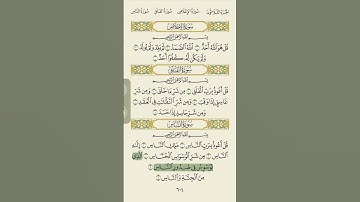 سورة الإخلاص سورة الفلق سورة الناس
سورة الإخلاص
بسم الله الرحمن الرحيم
قل هو الله أحد ۝ الله الصمد ۝ لم يلد ولم يولد ۝
ولم يكن له كفوا أحد ۝
سورة الفلق
بسم الله الرحمن الرحيم
قل أعوذ برب الفلق ۝ من شر ما خلق ۝ ومن شر
غاسق إذا وقب ۝ ومن شر النفاثات في العقد ۝
ومن شر حاسد إذا حسد ۝
سورة الناس
بسم الله الرحمن الرحيم
قل أعوذ برب الناس ۝ ملك الناس ۝ إله
الناس ۝ من شر الوسواس الخناس ۝ الذي
يوسوس في صدور الناس ۝
من الجنة والناس ۝
٦٠٤